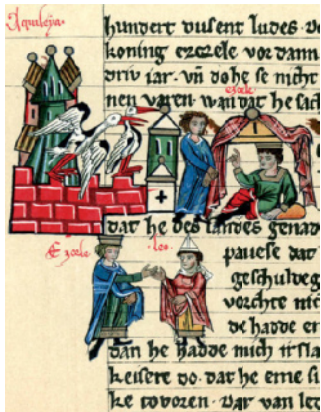 Aquileya.
hundert dusent ludes. De
koning ezcele vor dann
driv iar. vn̄ do he se nicht
nen varen. wan dat he sach
ezcele
dat he des landes genad
Ezcele
leo
pauese dat
geschuldeg
vorchte nic
de hadde en
dan he hadde mich irsla
keisere do. dat he eme si
ke tovoren. Dar van let